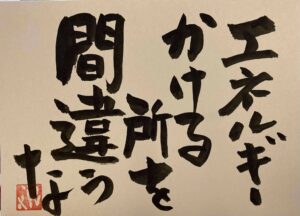 エネルギー
かける
所を
間違う
なよ